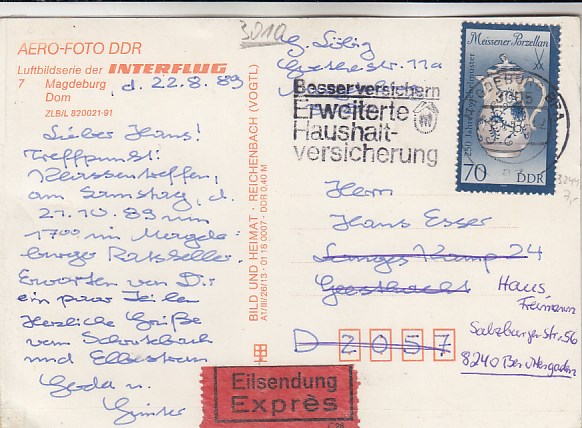 AERO-FOTO DDR
Luftbildserie der INTERFLUG
7 Magdeburg
Dom
ZLB/L 820021-91
d. 22.8.89
Lieber Hans!
Treffpunkt:
Klassentreffen,
am Samstag, d.
21.10.89 um
17.00 im Magde
burger Ratskeller.
Erwarten von Dir
ein paar Zeilen
Herzliche Grüße
vom
und
Gerda u.
Günter
BILD UND HEIMAT · REICHENBACH (VOGTL)
A1/III/26/13 · 01 18 0007 · DDR 0,40 M
3010
Goethestr. 11a
Besser versichern
Erweiterte
Haushalt-
versicherung
Meissener Porzellan
250 Jahre Zwiebelmuster
70
DDR
MAGDEBURG
Herrn
Hans Esser
Langes Kamp 24
Geesthacht
D 2057
Haus
Salzburger Str. 56
8240 Berchtesgaden
Eilsendung
Exprès